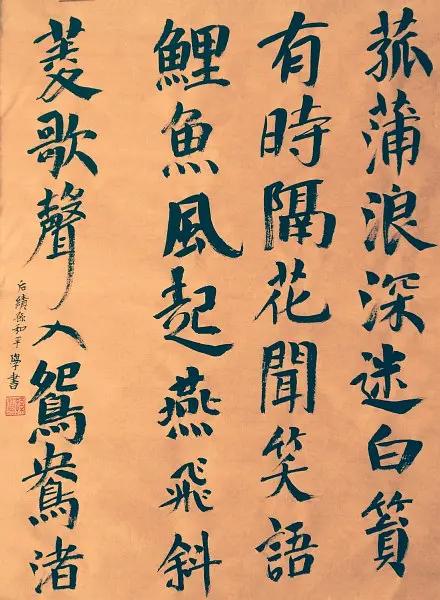 菰蒲浪深迷白篔
有時隔花聞笑語
鯉魚風起燕飛斜
菱歌聲入鴛鴦渚
孫和平學書